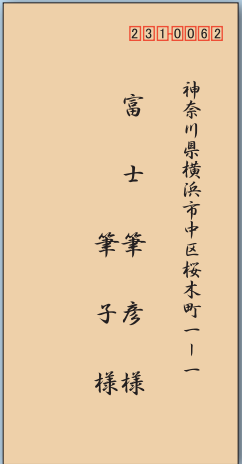 231-0062
神奈川県横浜市中区桜木町一ー一
富士筆彦様
筆子様